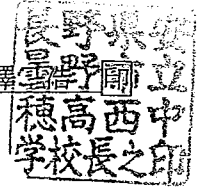 長野県安
曇野市立
穂高西中
学校長之印